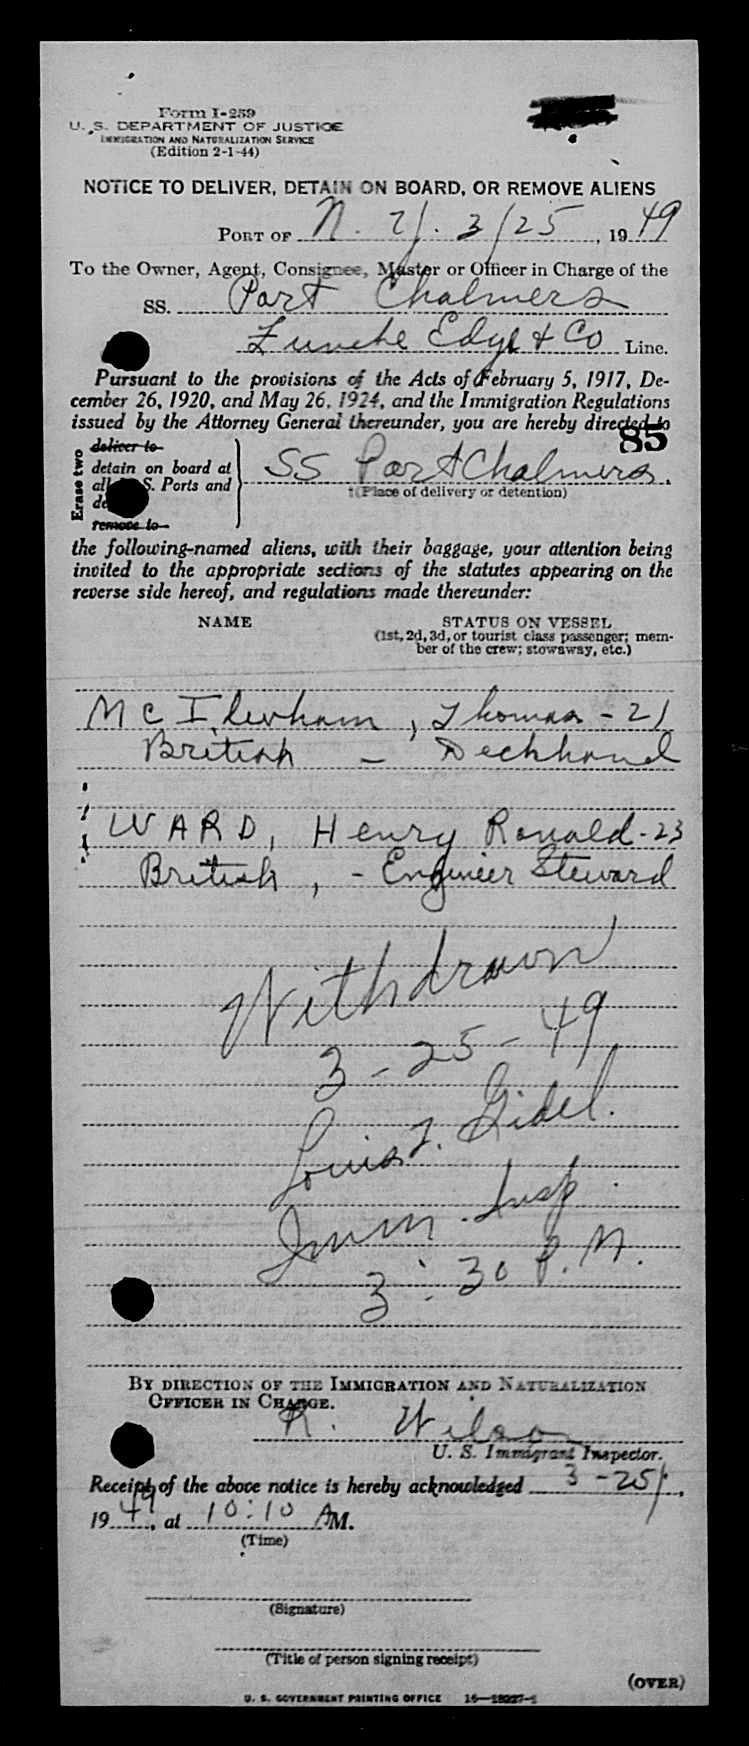 Form I-259
U. S. DEPARTMENT OF JUSTICE
IMMIGRATION AND NATURALIZATION SERVICE
(Edition 2-1-44)
NOTICE TO DELIVER, DETAIN ON BOARD, OR REMOVE ALIENS
PORT OF N. Y. 3/25, 1949
To the Owner, Agent, Consignee, Master or Officer in Charge of the
SS. Port Chalmers
Funche Edye & Co Line.
Pursuant to the provisions of the Acts of February 5, 1917, De-
cember 26, 1920, and May 26, 1924, and the Immigration Regulations
issued by the Attorney General thereunder, you are hereby directed to
85
Erase two
deliver to
detain on board at
all U. S. Ports and
remove to
SS Port Chalmers.
†(Place of delivery or detention)
the following-named aliens, with their baggage, your attention being
invited to the appropriate sections of the statutes appearing on the
reverse side hereof, and regulations made thereunder:
NAME STATUS ON VESSEL
(1st, 2d, 3d, or tourist class passenger; mem-
ber of the crew; stowaway, etc.)
Thomas - 21
British - Deckhand
WARD, Henry Ronald - 23
British, - Engineer Steward
Withdrawn
3-25-49
Louis J. Gidel.
Imm. Insp.
3:30 P.M.
BY DIRECTION OF THE IMMIGRATION AND NATURALIZATION
OFFICER IN CHARGE.
R. Wilson
U. S. Immigrant Inspector.
Receipt of the above notice is hereby acknowledged 3-25/,
1949, at 10:10 AM.
(Time)
(Signature)
(Title of person signing receipt)
(OVER)
U. S. GOVERNMENT PRINTING OFFICE 16—18227-1